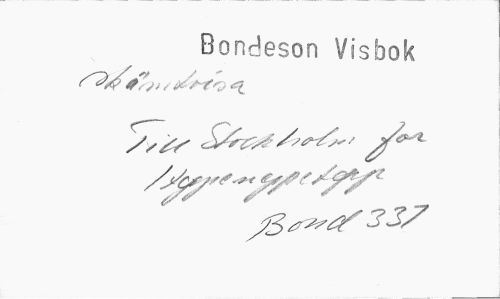 Bondeson Visbok
skämtvisa
Till Stockholm for
Bond 337